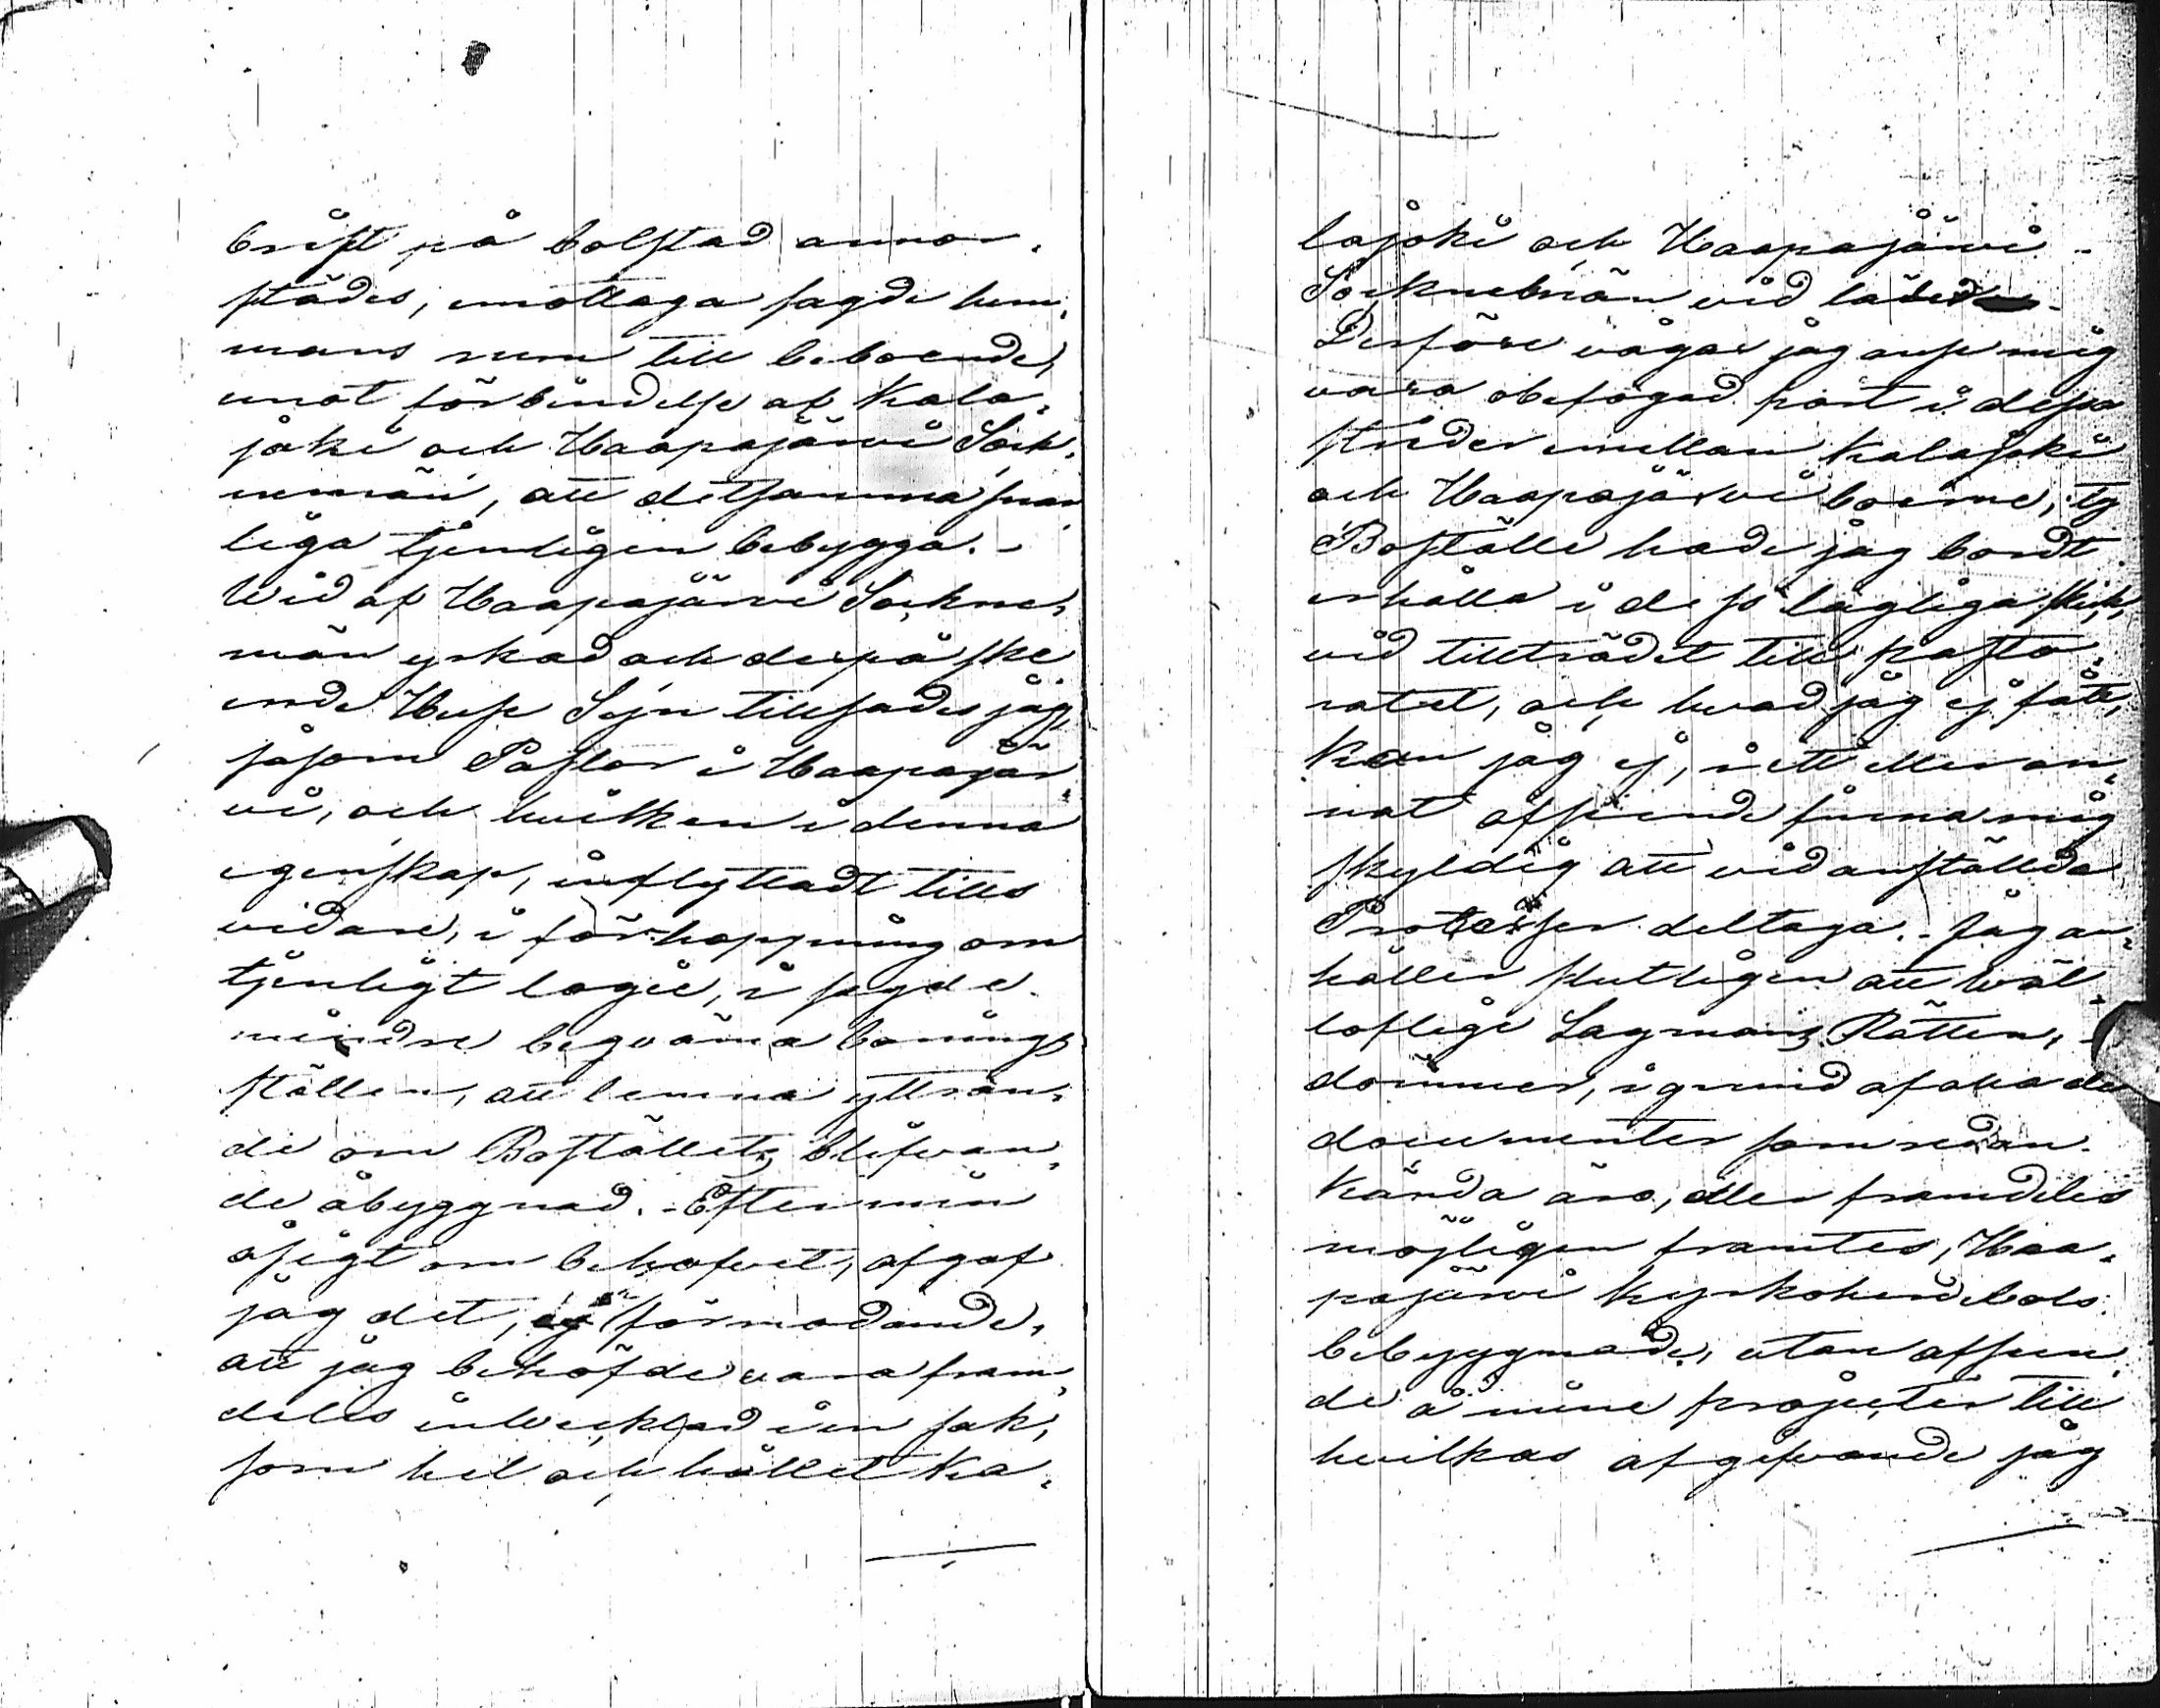 brist på bolstad annor-
städes, emottaga sagde hem-
mans rum till beboende,
emot förbindelse af Kala-
joki och Haapajärvi Sock-
nemän, att detsamma snar-
liga tjenligen bebygga. -
Wid af Haapajärvi Sockne-
män yrkad och derpå ske-
ende Huse Syn tillsades jag,
såsom Pastor i Haapajär-
vi, och hvilken i denna
egenskap, inflyttadt tills
vidare, i förhoppning om
tjenligt logie, i sagde
mindre beqväma bonings
ställen, att lemna yttran-
de om Boställets blifvan-
de åbyggnad. - Efter min
åsigt om behofvet, afgaf
jag det, ej förmodande,
att jag behöfde vara fram-
deles invecklad i en sak,
som hel och hållet Ka-
lajoki och Haapajärvi
Socknebnän vid låder
Derföre vågar jag anse mig
vara obefogad part i dessa
strider emellan Kalajoki
och Haapajärvi boerne, ty
Boställe hade jag bordt
erhålla i dess lagliga skick,
vid tillträdet till pasto-
ratet, och hvad jag ej fått,
kan jag ej, i ett eller an-
nat afseende finna mig
skyldig att vid anställda
Processer deltaga. - Jag an-
håller slutligen att Wäl-
loflige Lagmans Rätten,
dömmer, i grund af alla de
documenter som redan
kända äro, eller framdeles
möjligen framtes, Haa-
pajärvi Kyrkoherdebols
bebyggnade, utan afseen-
de å mine projecter till
hvilkas afgifvande jag